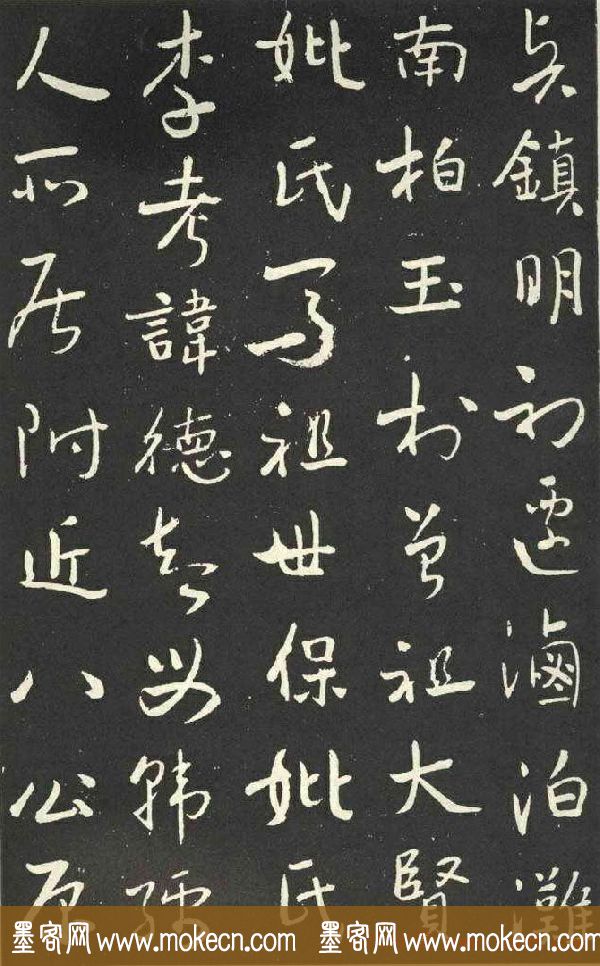 鎮明初遷滷泊灘
南柏玉村曾祖大賢
妣氏馬祖世保妣氏
李考諱德母韓孺
人所居附近八公原
墨客网 www.mokecn.com 墨客网 www.mokecn.com